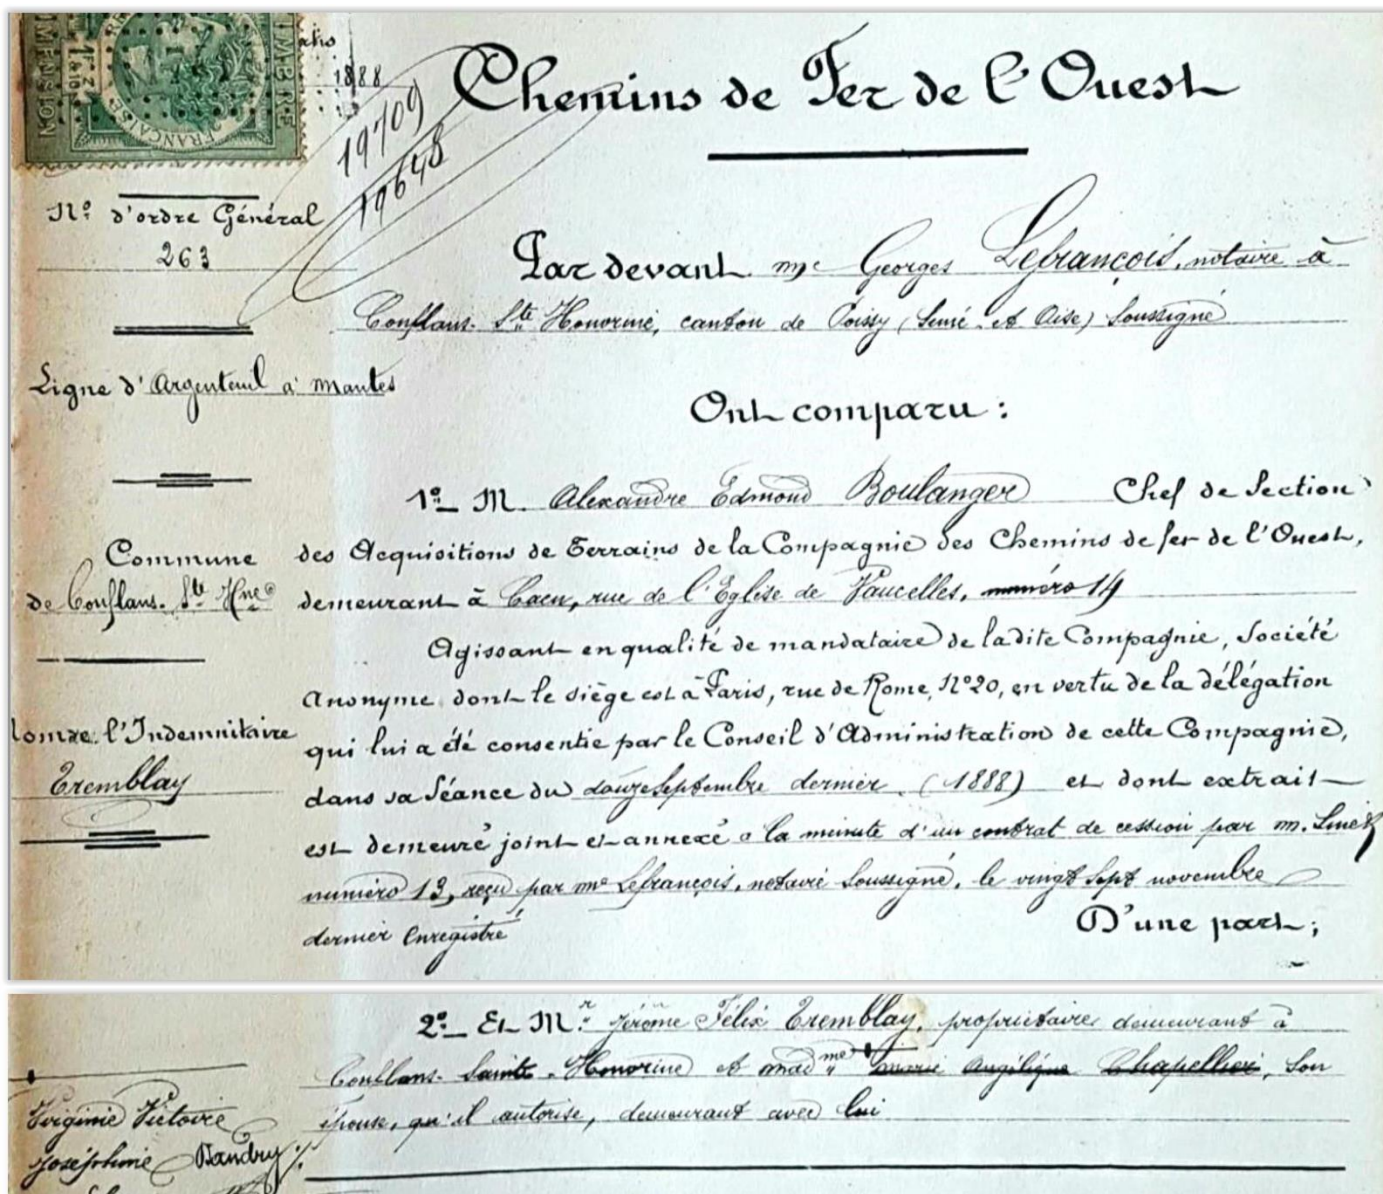 TIMBRE
DIMENSION
FRANÇAISE
1888
19709
19648
Chemins de Fer de l'Ouest
N° d'ordre Général
263
Par devant Me Georges Lefrançois, notaire à
Conflans-Ste Honorine, canton de Poissy (Seine et Oise) Soussigné
Ligne d'Argenteuil à Mantes
Ont comparu :
1° M. Alexandre Edmond Boulanger Chef de Section
des Acquisitions de Terrains de la Compagnie des Chemins de fer de l'Ouest,
demeurant à Caen, rue de l'Eglise de Vaucelles, numéro 14
Commune
de Conflans-Ste Hne
Agissant en qualité de mandataire de ladite Compagnie, Société
Anonyme dont le siège est à Paris, rue de Rome, N° 20, en vertu de la délégation
qui lui a été consentie par le Conseil d'Administration de cette Compagnie,
dans sa Séance du douze Septembre dernier (1888) et dont extrait
est demeuré joint et annexé à la minute d'un contrat de cession par M.
numéro 13, reçu par Me Lefrançois, notaire Soussigné, le vingt Sept novembre
dernier Enregistré
D'une part ;
l'Indemnitaire
Tremblay
2° Et Mr Jérôme Félix Tremblay, propriétaire, demeurant à
Conflans-Sainte-Honorine et madme Marie Angélique Chapellier, Son
épouse, qu'il autorise, demeurant avec lui
Virginie Victoire
Joséphine Baudry